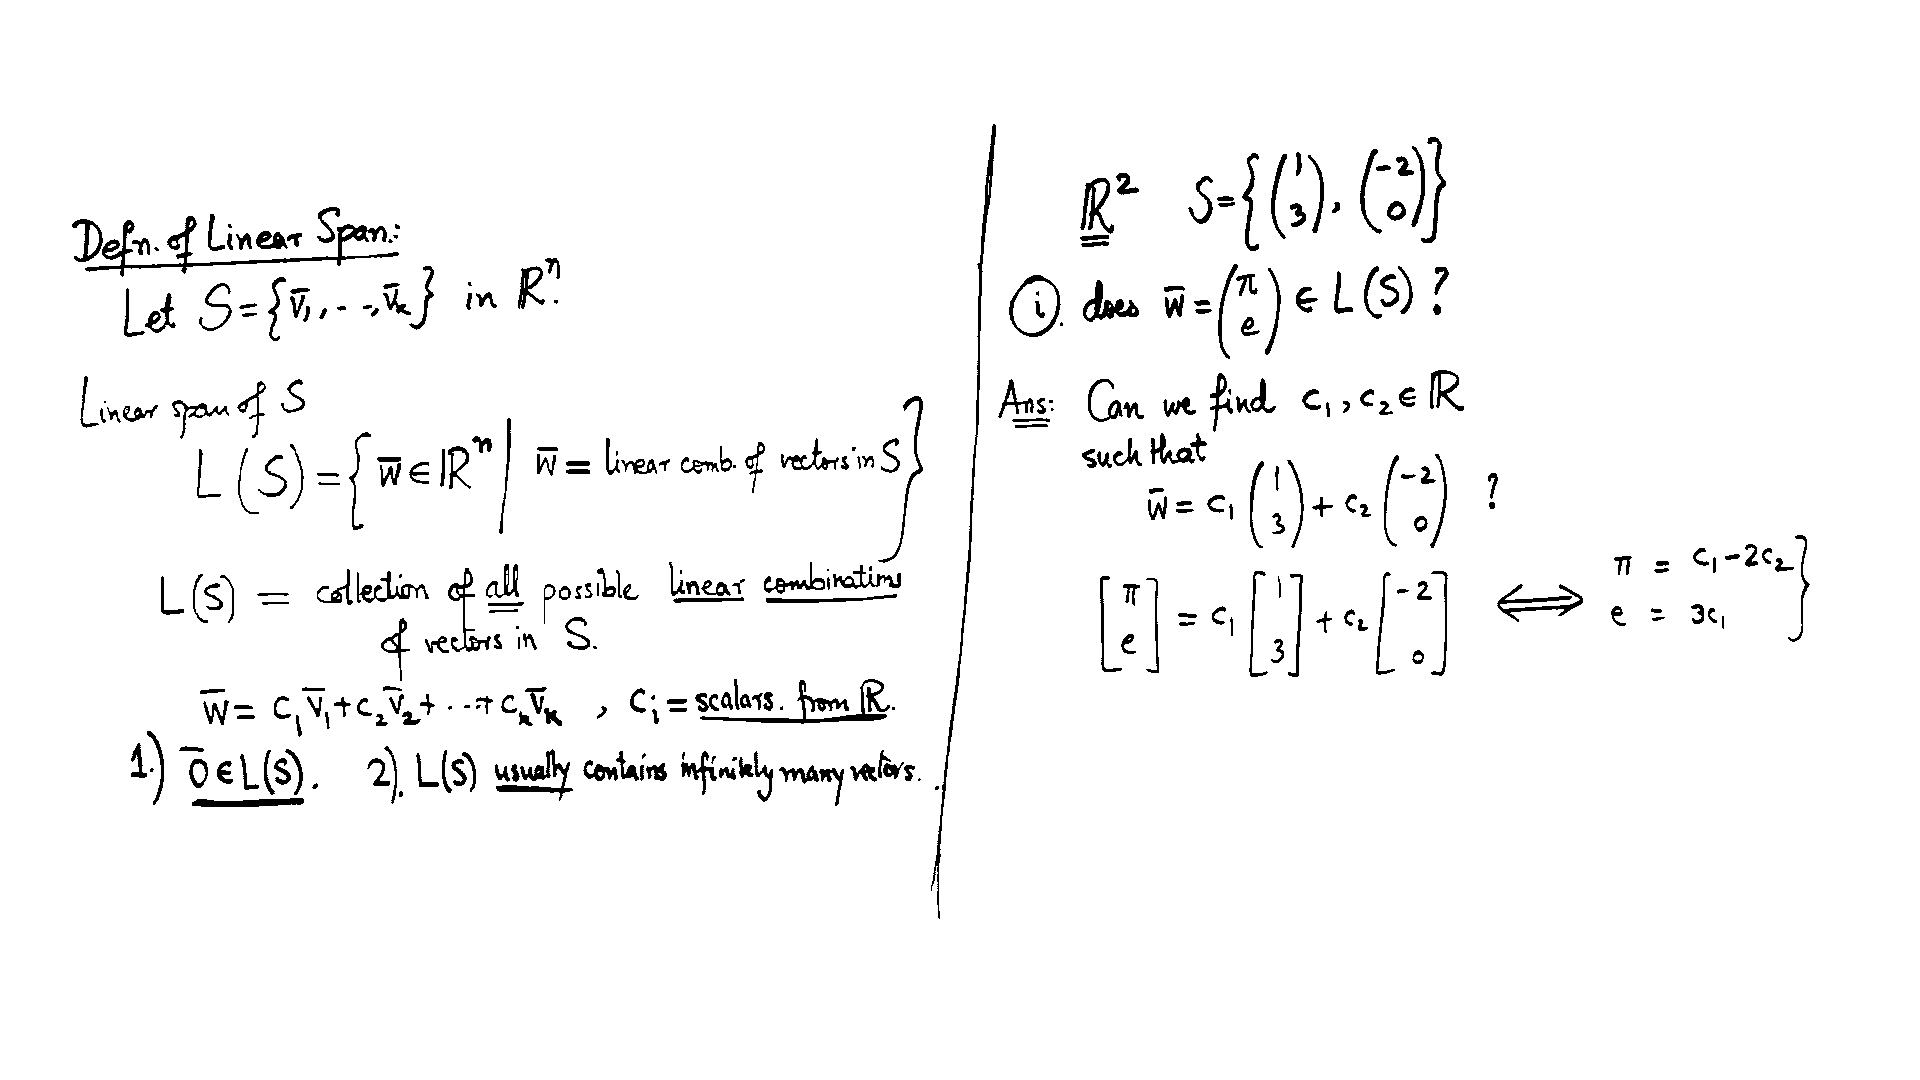 Defn. of Linear Span:
Let S = {v̄₁, . . , v̄ₖ} in ℝⁿ.
Linear span of S
L(S) = { w̄ ∈ ℝⁿ | w̄ = linear comb. of vectors in S }
L(S) = collection of all possible linear combinations
of vectors in S.
w̄ = c₁v̄₁ + c₂v̄₂ + ... + cₖv̄ₖ , cᵢ = scalars. from ℝ.
1.) 0̄ ∈ L(S). 2). L(S) usually contains infinitely many vectors.
ℝ² S = { (1 3), (-2 0) }
i. does w̄ = (π e) ∈ L(S) ?
Ans: Can we find c₁, c₂ ∈ ℝ
such that
w̄ = c₁ (1 3) + c₂ (-2 0) ?
[π e] = c₁ [1 3] + c₂ [-2 0] ⟺ π = c₁ - 2c₂ }
e = 3c₁